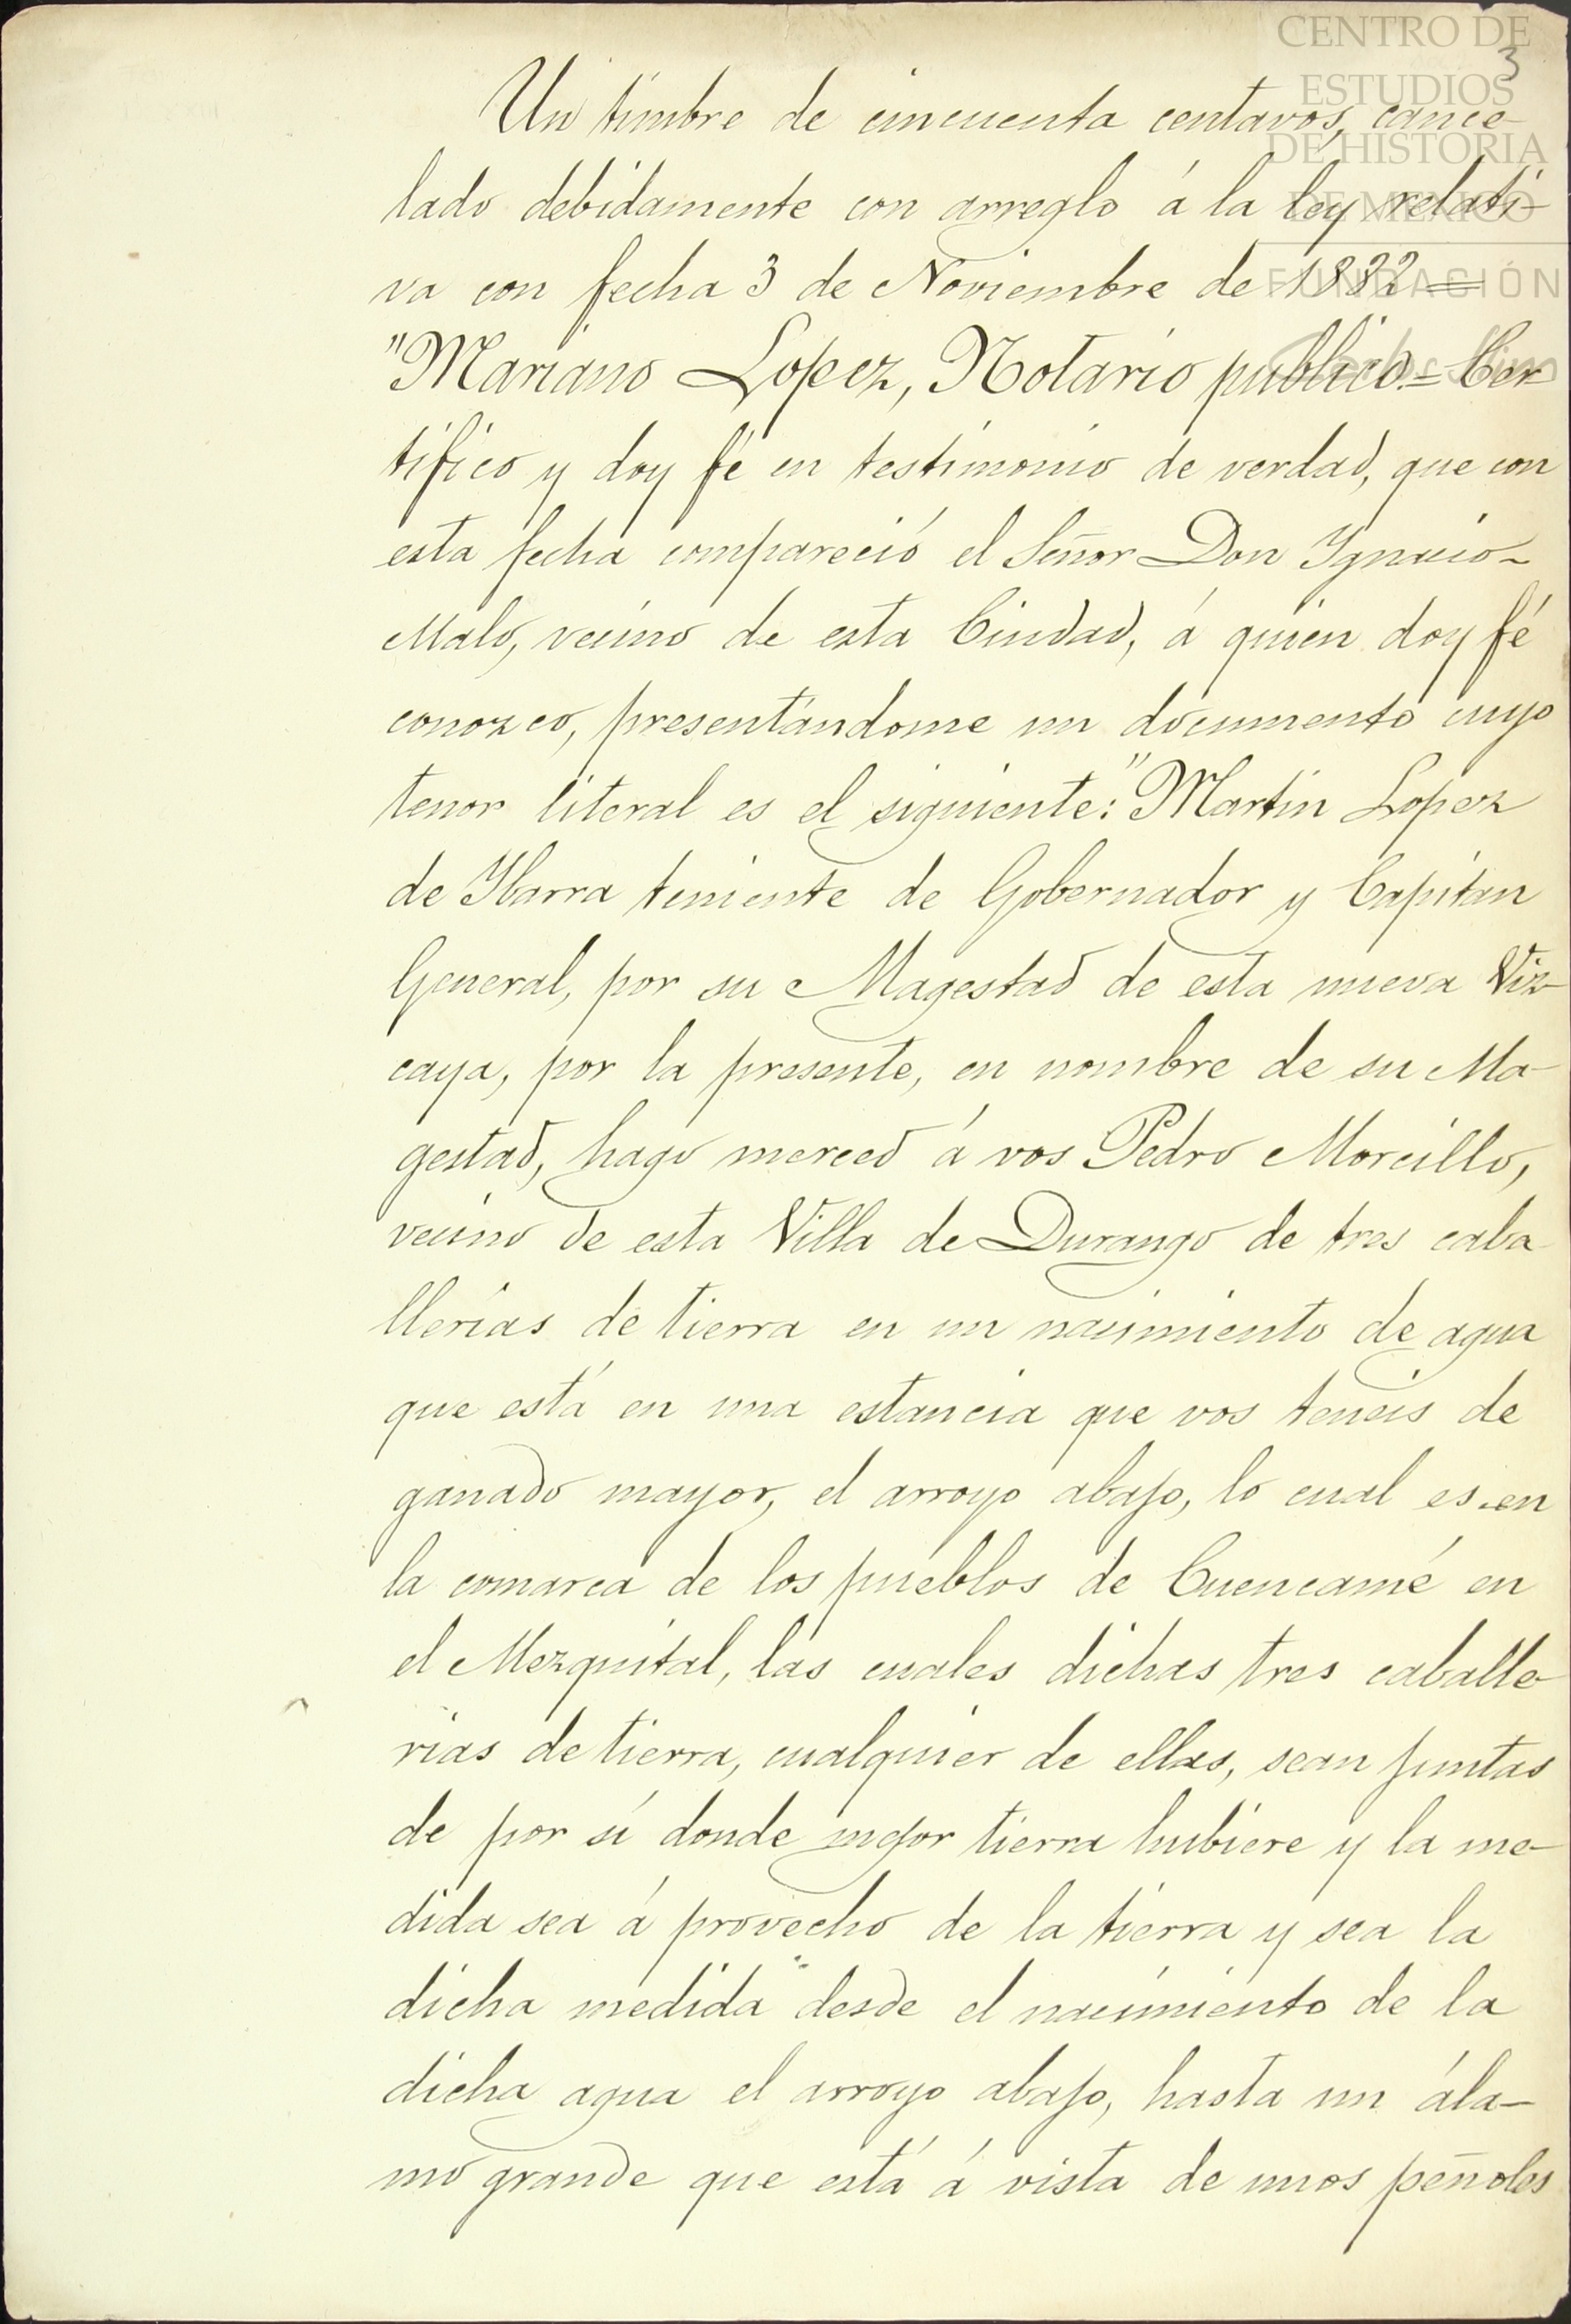 CENTRO DE
ESTUDIOS
DE HISTORIA
DE MEXICO
FUNDACIÓN
3
Un timbre de cincuenta centavos, cance-
lado debidamente con arreglo á la ley relati-
va con fecha 3 de Noviembre de 1882=
"Mariano Lopez, Notario publico.= Cer
tifico y doy fé en testimonio de verdad, que con
esta fecha compareció el Señor Don Ignacio-
Malo, vecino de esta Ciudad, á quien doy fé
conozco, presentándome un documento cuyo
tenor literal es el siguiente: "Martin Lopez
de Ibarra teniente de Gobernador y Capitan
General, por su Magestad de esta nueva Viz-
caya, por la presente, en nombre de su Ma-
gestad, hago merced á vos Pedro Morcillo,
vecino de esta Villa de Durango de tres caba
llerías de tierra en un nacimiento de agua
que está en una estancia que vos teneis de
ganado mayor, el arroyo abajo, lo cual es en
la comarca de los pueblos de Cuencamé en
el Mezquital, las cuales dichas tres caballe-
rias de tierra, cualquier de ellas, sean juntas
de por sí donde mejor tierra hubiere y la me-
dida sea á provecho de la tierra y sea la
dicha medida desde el nacimiento de la
dicha agua el arroyo abajo, hasta un ála-
mo grande que está á vista de unos peñoles